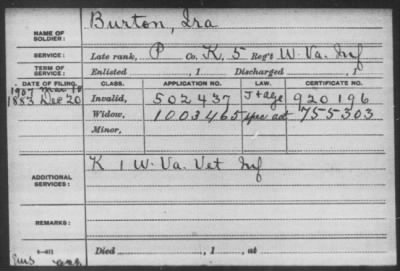 NAME OF SOLDIER: Burton, Ira
SERVICE: Late rank, P Co. K, 5 Reg't W. Va. Inf
TERM OF SERVICE: Enlisted , 1 Discharged , 1
DATE OF FILING. CLASS. APPLICATION NO. LAW. CERTIFICATE NO.
1907
1883 Dec 20 Invalid, 502437 920196
Widow, 1003465 755303
Minor,
ADDITIONAL SERVICES: K 1 W. Va. Vet Inf
REMARKS:
Died , 1 , at